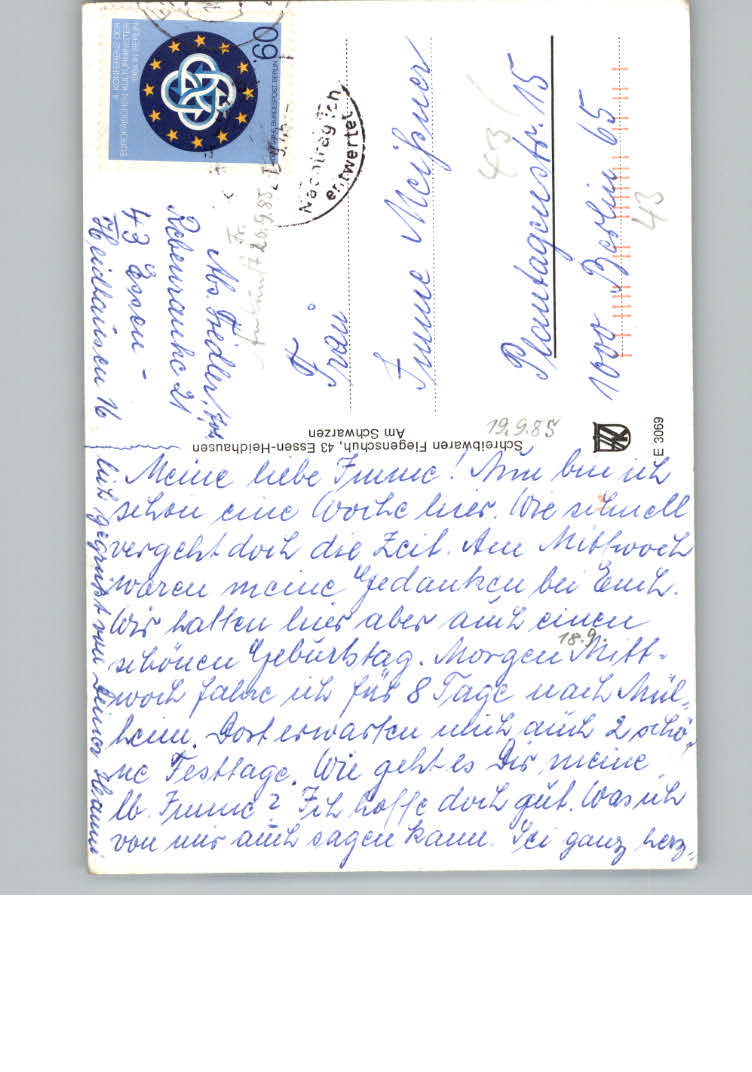 4. KONFERENZ DER
EUROPÄISCHEN KULTURMINISTER
1984 IN BERLIN
60
DEUTSCHE BUNDESPOST BERLIN
Nachträglich
entwertet
Fr.
Ankunft 20.9.85
Abs. Fiedler,
Rebenranke 21
43 Essen -
Heidhausen 16
Frau
Imme Meißner
Plantagenstr. 15
1000 Berlin 65
43
43
Schreibwaren Fiegenschuh, 43 Essen-Heidhausen
Am Schwarzen
19.9.85
E 3069
Meine liebe Imme! Nun bin ich
schon eine Woche hier. Wie schnell
vergeht doch die Zeit. Am Mittwoch
waren meine Gedanken bei Euch.
Wir hatten hier aber auch einen
schönen Geburtstag. Morgen Mitt-
18.9.
woch fahre ich für 8 Tage nach Mül-
heim. Dort erwarten mich auch 2 schö-
ne Festtage. Wie geht es Dir, meine
lb. Imme? Ich hoffe doch gut. Was ich
von mir auch sagen kann. Sei ganz herz-
lich gegrüßt von Deiner Hanni